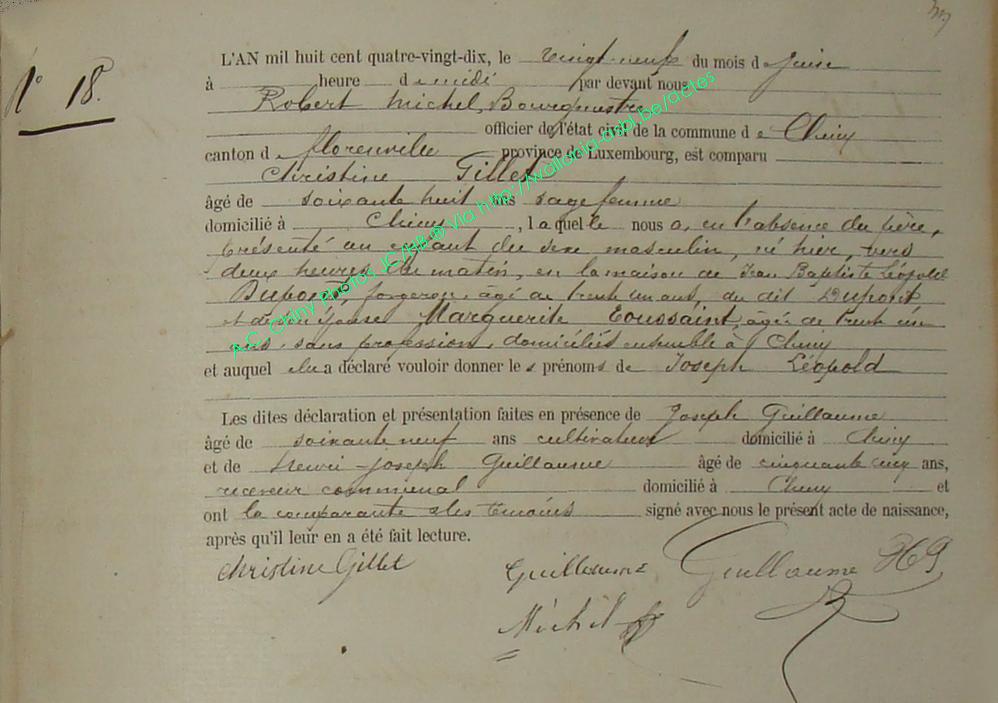 N° 18.
L'AN mil huit cent quatre-vingt-dix, le vingt-neuf du mois de Juin
à heure de midi par devant nous
Robert Michel, Bourgmestre
officier de l'état civil de la commune de Chiny
canton de Florenville province de Luxembourg, est comparu
Christine Gillet
âgé de soixante huit ans sagefemme
domicilié à Chiny, laquelle nous a, en l'absence du père,
présenté un enfant du sexe masculin, né hier, vers
deux heures du matin, en la maison de Jean Baptiste Léopold
Dupont, forgeron, âgé de trente un ans, du dit Dupont
et de son épouse Marguerite Toussaint, âgée de trente un
ans, sans profession, domiciliés ensemble à Chiny
et auquel elle a déclaré vouloir donner les prénoms de Joseph Léopold
Les dites déclaration et présentation faites en présence de Joseph Guillaume
âgé de soixante neuf ans cultivateur domicilié à Chiny
et de Henri-Joseph Guillaume âgé de cinquante cinq ans,
receveur communal domicilié à Chiny et
ont la comparante & les témoins signé avec nous le présent acte de naissance,
après qu'il leur en a été fait lecture.
Christine Gillet Guillaume Guillaume HG
Michel
A.C. Chiny Photos JC/HB ® Via http://wallonia-asbl.be/actes